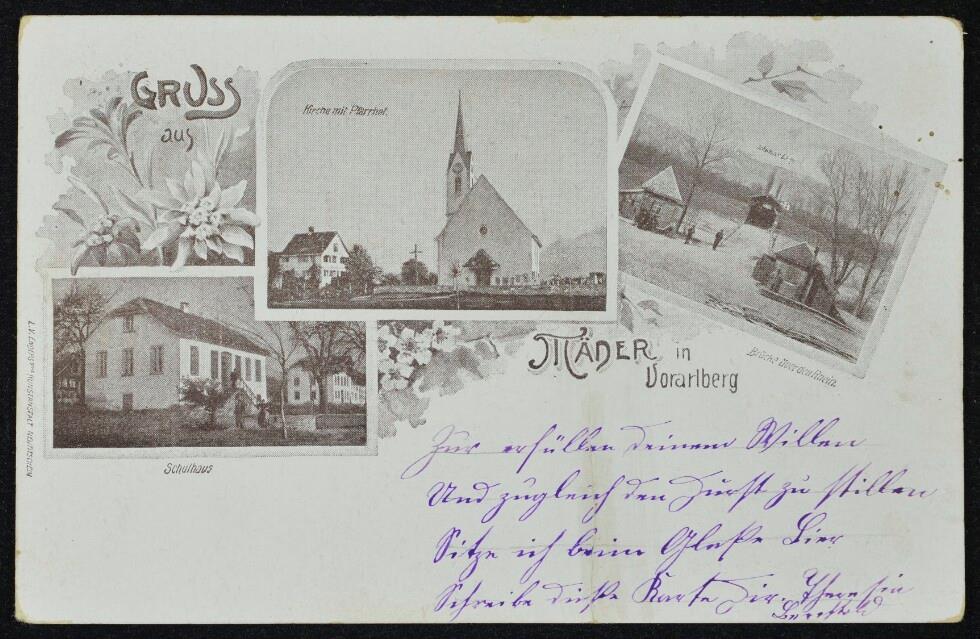 GRUSS
aus
Kirche mit Pfarrhof.
Brücke über den Rhein.
MÄDER in
Vorarlberg
Schulhaus
Zur erfüllen deinem Willen
Und zugleich den Durst zu stillen
Sitze ich beim Glaße Bier
Schreibe diese Karte Dir.